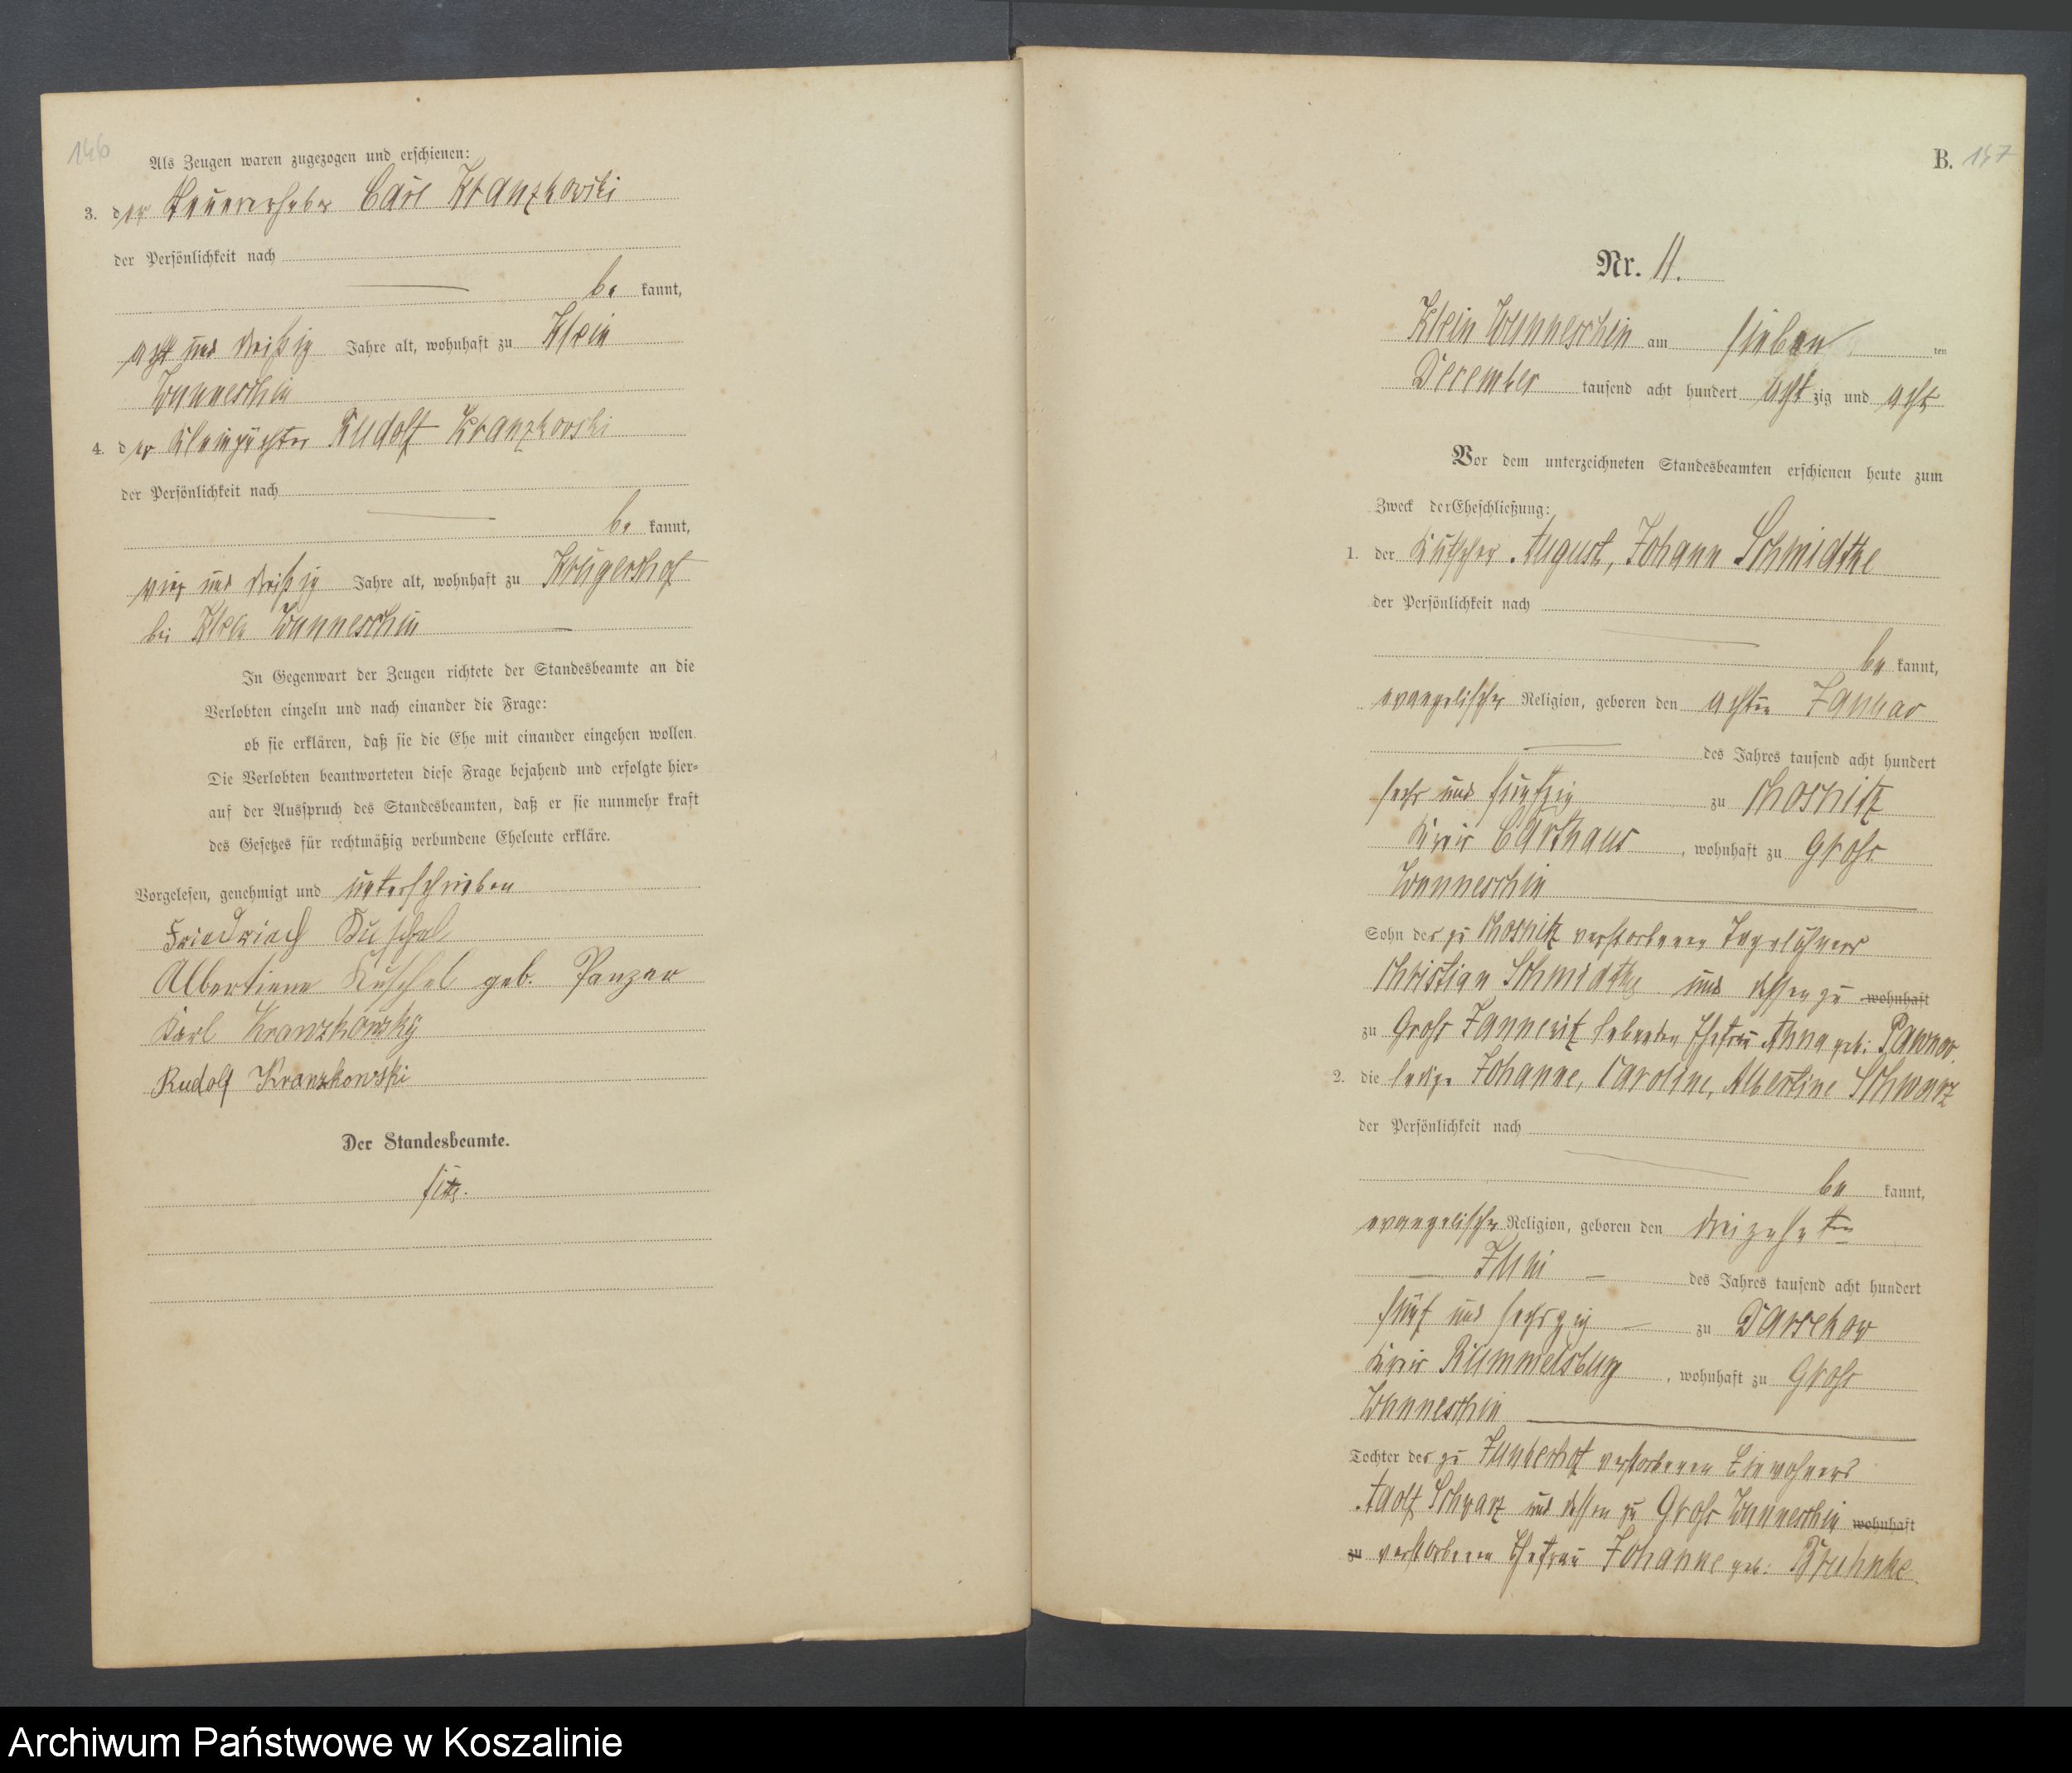 146
Als Zeugen waren zugezogen und erschienen:
3. der Carl Kranzkowski
der Persönlichkeit nach
be kannt,
acht und dreißig Jahre alt, wohnhaft zu Klein
Wunneschin
4. der Kleinpächter Rudolf Kranzkowski
der Persönlichkeit nach
be kannt,
vier und dreißig Jahre alt, wohnhaft zu Krügershof
bei Klein Wunneschin
In Gegenwart der Zeugen richtete der Standesbeamte an die
Verlobten einzeln und nach einander die Frage:
ob sie erklären, daß sie die Ehe mit einander eingehen wollen.
Die Verlobten beantworteten diese Frage bejahend und erfolgte hier=
auf der Ausspruch des Standesbeamten, daß er sie nunmehr kraft
des Gesetzes für rechtmäßig verbundene Eheleute erkläre.
Vorgelesen, genehmigt und unterschrieben
Friedrich Kuschel
Albertiene Kuschel geb. Panzer
Karl Kranzkowsky
Rudolf Kranzkowski
Der Standesbeamte.
B. 147
Nr. 11.
Klein Wunneschin am sieben ten
December tausend acht hundert acht zig und acht
Vor dem unterzeichneten Standesbeamten erschienen heute zum
Zweck der Eheschließung:
1. der Kutscher August, Johann Schmidtke
der Persönlichkeit nach
be kannt,
evangelischer Religion, geboren den achten Januar
des Jahres tausend acht hundert
sechs und fünfzig zu Chosnitz
Kreis Carthaus, wohnhaft zu Groß
Wunneschin
Sohn des zu Chosnitz verstorbenen Tagelöhners
Christian Schmidtke und dessen zu wohnhaft
zu Groß Jannewitz lebenden Ehefrau Anna geb.
2. die ledige Johanne, Caroline, Albertine Schwarz
der Persönlichkeit nach
be kannt,
evangelischer Religion, geboren den dreizehnten
Juni des Jahres tausend acht hundert
fünf und sechszig zu Darsekow
Kreis Rummelsburg, wohnhaft zu Groß
Wunneschin
Tochter des zu Junkerhof verstorbenen Einwohners
Adolf Schwarz und dessen zu Groß Wunneschin wohnhaft
zu verstorbenen Ehefrau Johanne geb.
Archiwum Państwowe w Koszalinie